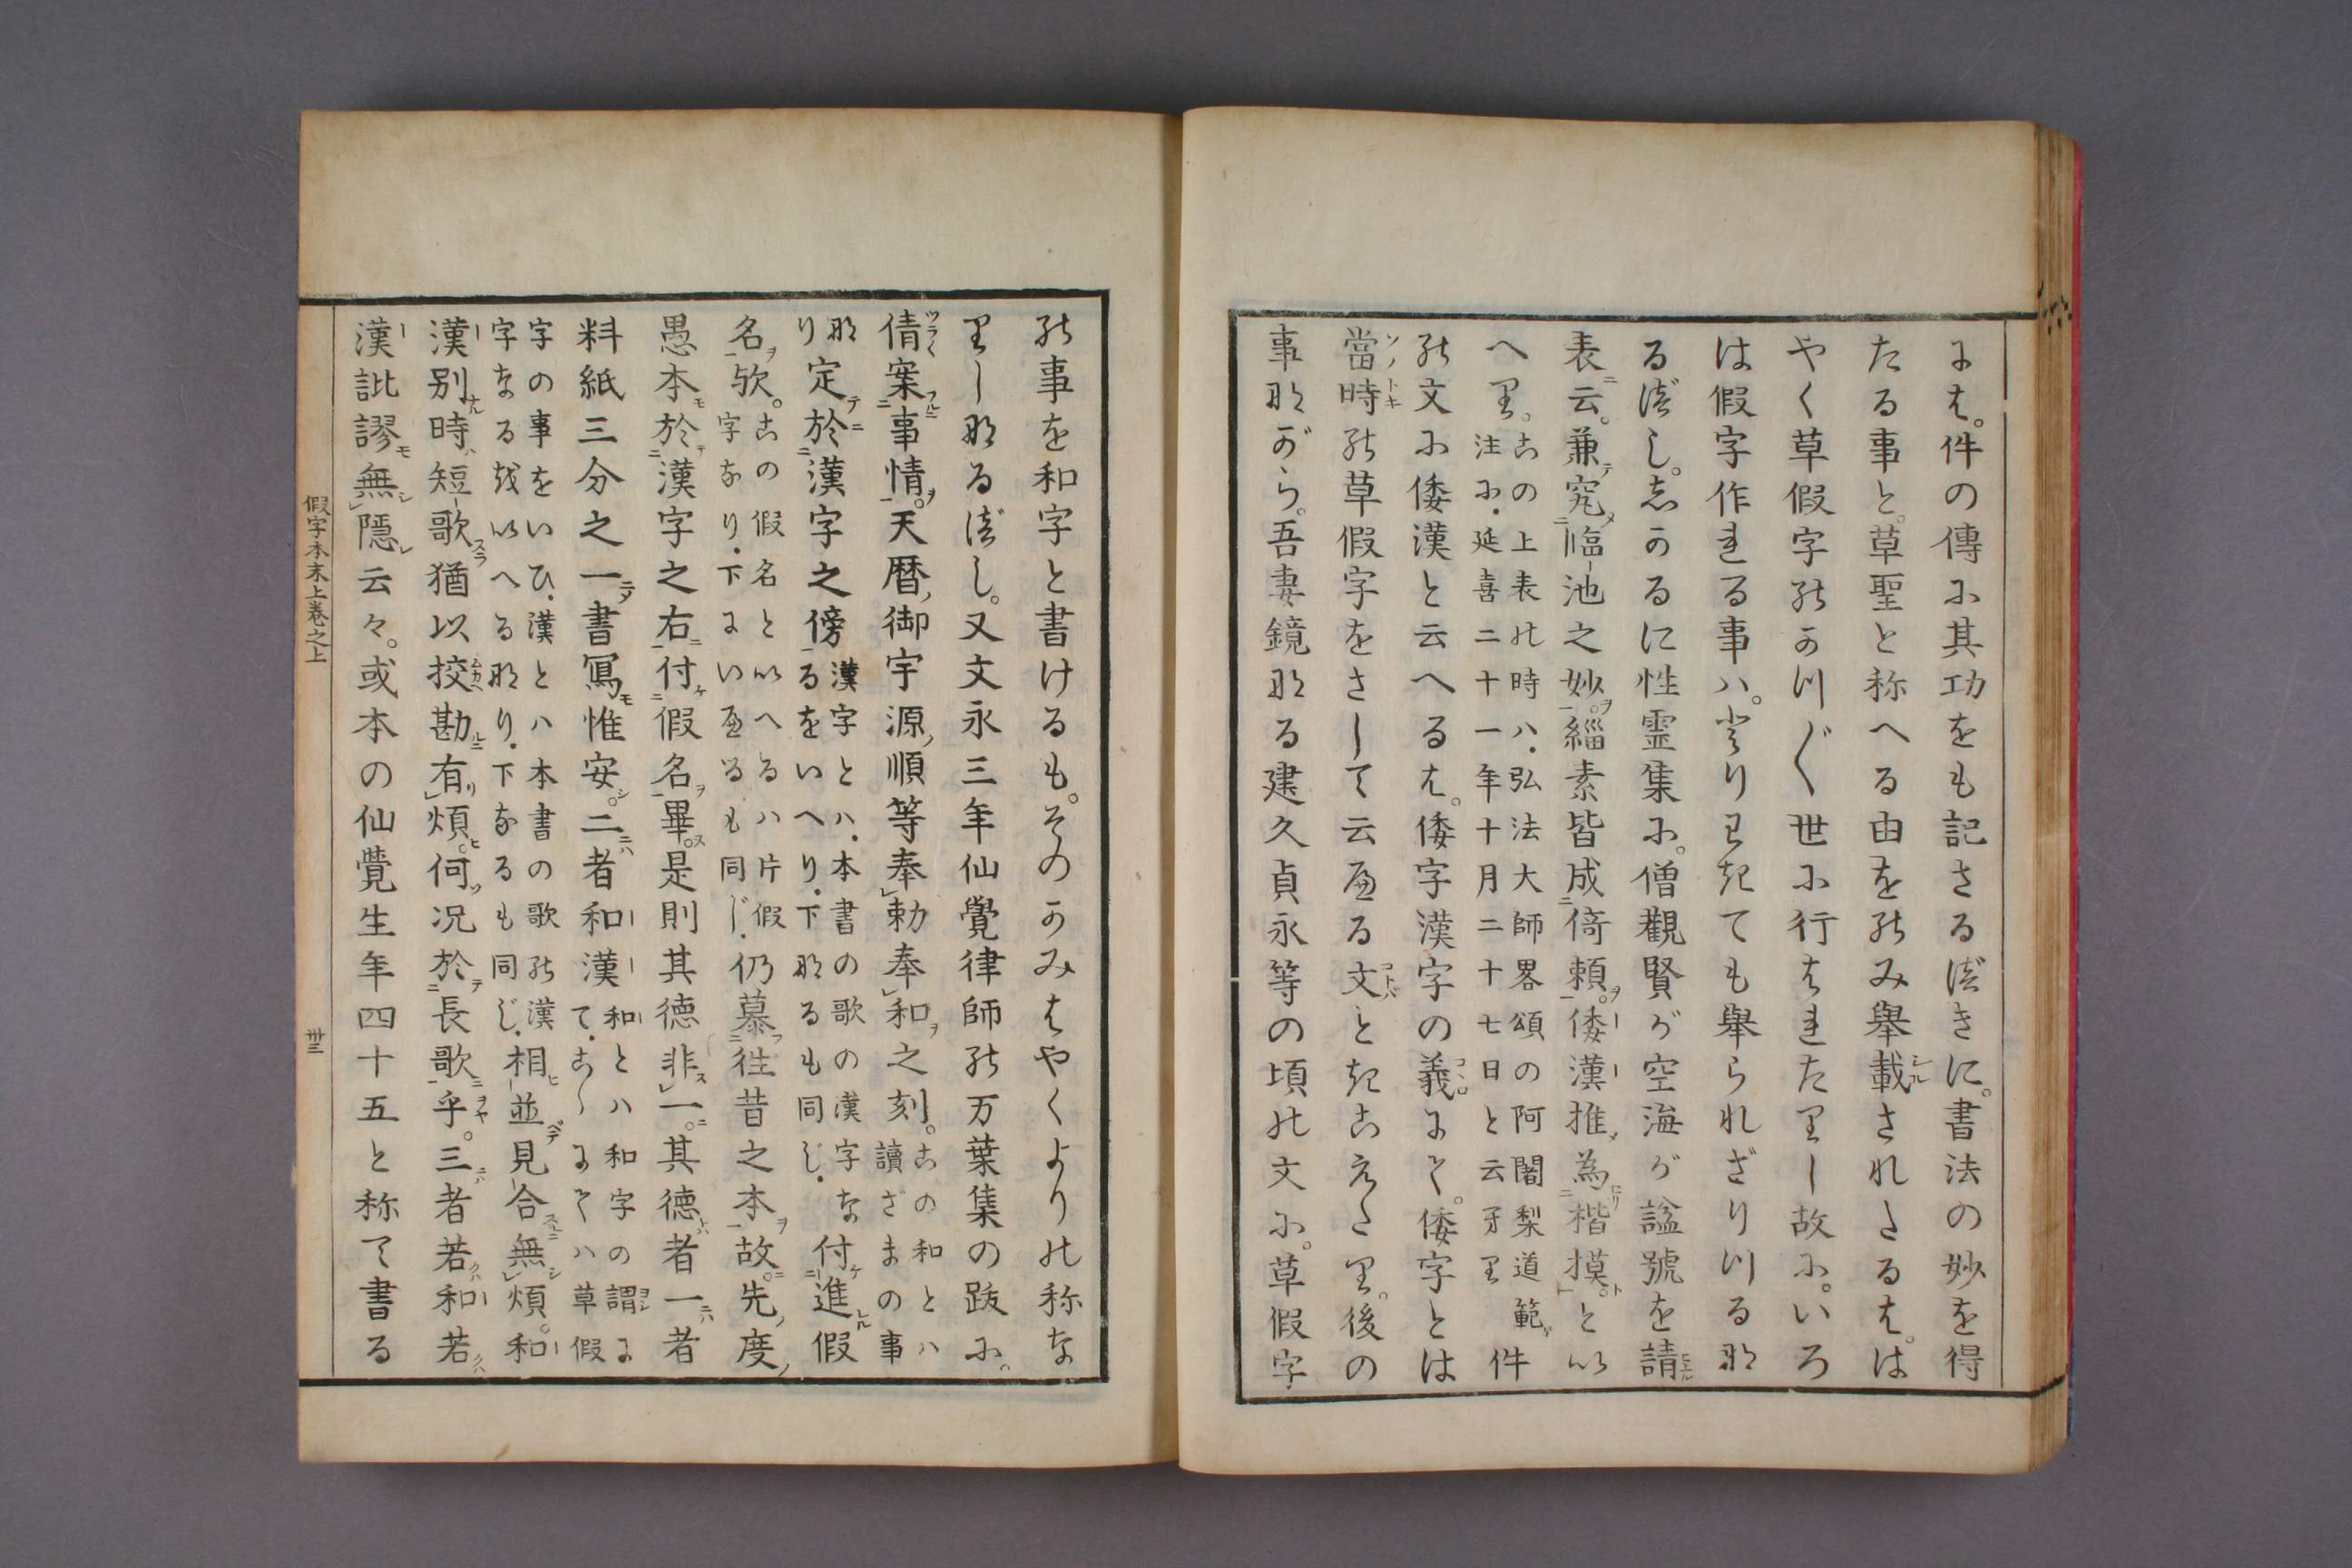 にも。件の傳に其功をも記さるべきに。書法の妙を得
たる事と。草聖と称へる由をのみ舉載されたるは。は
やく草假字のかつ〴〵世に行はれたりし故に。いろ
は假字作れる事ハ。
ても舉られざりつるな
るべし。しかるに性霊集に。僧觀賢が空海が謚號を請
表云。兼究臨池之妙。緇素皆成倚頼。倭漢推為楷摸。とい
へり。
この上表の時ハ、弘法大師畧頌の阿闍梨道範が
注に、延喜二十一年十月二十七日と云り
件
の文に倭漢と云へるは。倭字漢字の義にて。倭字とは
當時の草假字をさして云る文ときこえたり。後の
事ながら。吾妻鏡なる建久貞永等の頃の文に。草假字
の事を和字と書けるも。そのかみはやくよりの称な
りしなるべし。又文永三年仙覺律師の万葉集の跋に。
倩案事情。天暦御宇源順等奉勅奉和之刻。
この和とハ
讀ざまの事
なり
定於漢字之傍
漢字とハ、本書の歌の漢字な
るをいへり、下なるも同じ、
付進假
名歟。
この假名といへるハ片假
字なり、下にいへるも同じ、
仍慕徃昔之本故。先度
愚本於漢字之右付假名畢。是則其徳非一。其徳者一者
料紙三分之一書寫惟安。二者和漢
和とハ和字の謂に
て、こゝにてハ草假
字の事をいひ、漢とハ本書の歌の漢
字なるをいへるなり、下なるも同じ、
相並見合無煩。和
漢別時短歌猶以挍勘有煩。何況於長歌乎。三者若和若
漢訛謬無隠云々。或本の仙覺生年四十五と称て書る
假字本末上巻之上
卅三